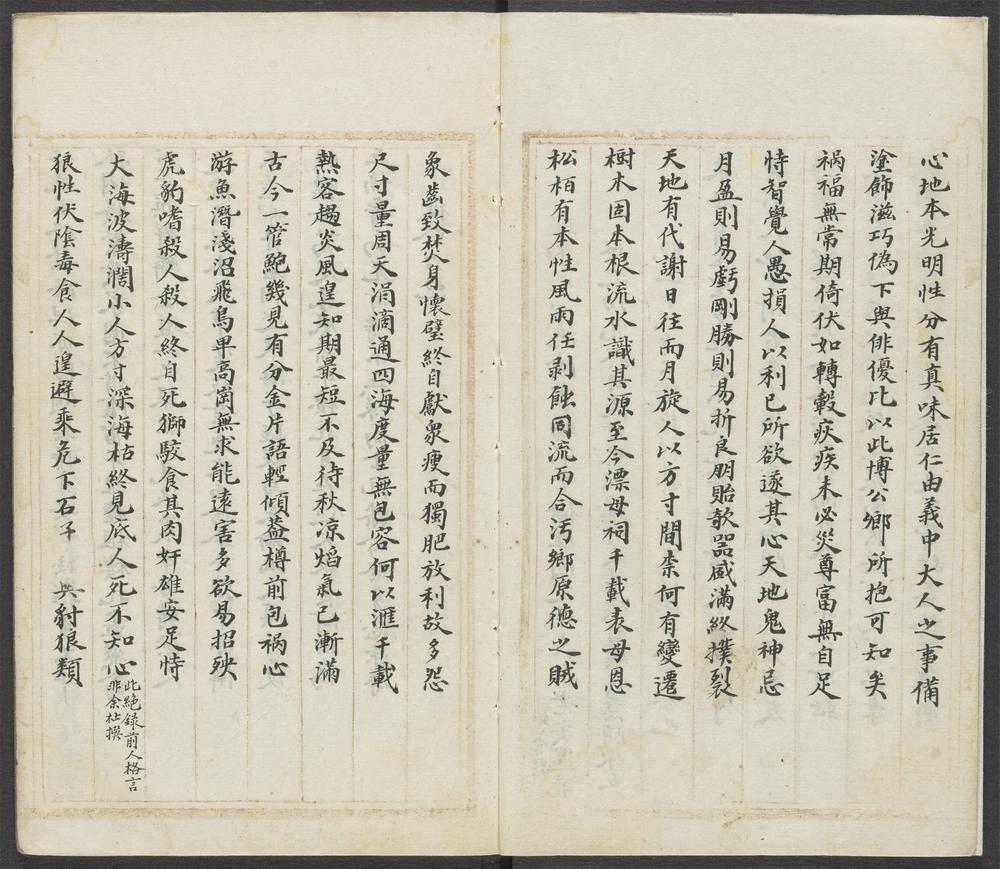 心地本光明性分有真味居仁由義中大人之事備
塗飾滋巧偽下與俳優比以此博公鄉所抱可知矣
禍福無常期倚伏如轉轂疾疾未必災尊富無自足
恃智覺人愚損人以利已所欲遂其心天地鬼神忌
月盈則易虧剛勝則易折良朋貽欹器盛滿終撲裂
天地有代謝日往而月旋人以方寸間柰何有變遷
樹木固本根流水識其源至今漂母祠千載表母恩
松栢有本性風雨任剥蝕同流而合污鄉原德之賊
象齒致焚身懷璧終自獻衆瘦而獨肥放利故多怨
尺寸量周天涓滴通四海度量無包容何以滙千載
熱客趨炎風遑知期最短不及待秋凉焰氣已漸滿
古今一管鮑幾見有分金片語輕傾葢樽前包禍心
游魚潛淺沼飛鳥卑高崗無求能遠害多欲易招殃
虎豹嗜殺人殺人終自死獅駮食其肉奸雄安足恃
大海波濤濶小人方寸深海枯終見底人死不知心
此絶録前人格言
非余杜撰
狼性伏陰毒食人人遑避乘危下石子 共豺狼類